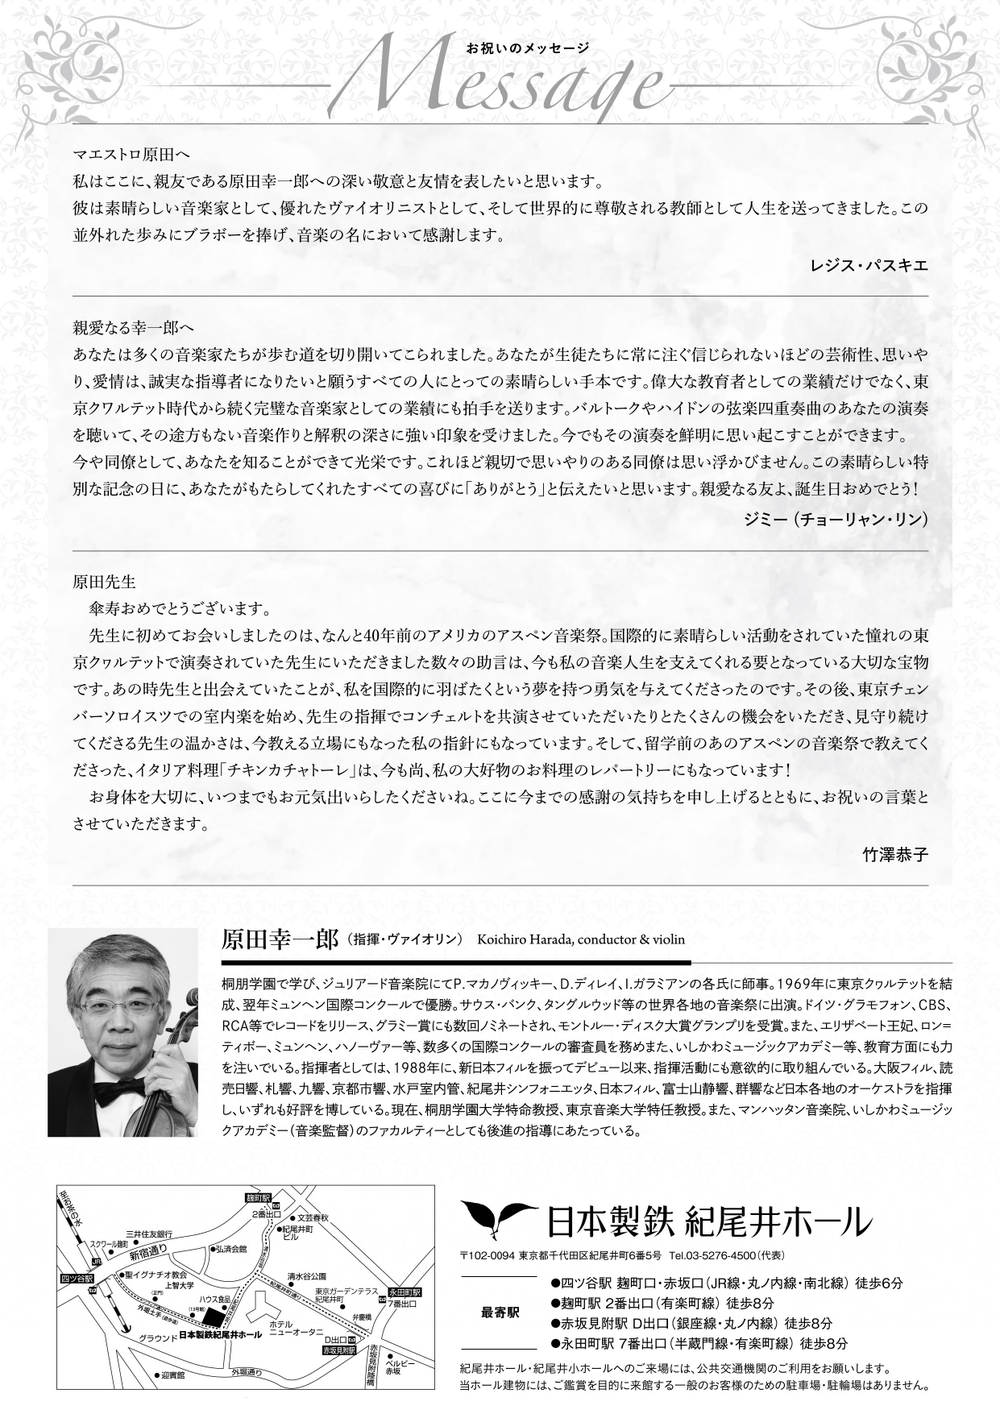 お祝いのメッセージ
Message
マエストロ原田へ
私はここに、親友である原田幸一郎への深い敬意と友情を表したいと思います。
彼は素晴らしい音楽家として、優れたヴァイオリニストとして、そして世界的に尊敬される教師として人生を送ってきました。この
並外れた歩みにブラボーを捧げ、音楽の名において感謝します。
レジス・パスキエ
親愛なる幸一郎へ
あなたは多くの音楽家たちが歩む道を切り開いてこられました。あなたが生徒たちに常に注ぐ信じられないほどの芸術性、思いや
り、愛情は、誠実な指導者になりたいと願うすべての人にとっての素晴らしい手本です。偉大な教育者としての業績だけでなく、東
京クワルテット時代から続く完璧な音楽家としての業績にも拍手を送ります。バルトークやハイドンの弦楽四重奏曲のあなたの演奏
を聴いて、その途方もない音楽作りと解釈の深さに強い印象を受けました。今でもその演奏を鮮明に思い起こすことができます。
今や同僚として、あなたを知ることができて光栄です。これほど親切で思いやりのある同僚は思い浮かびません。この素晴らしい特
別な記念の日に、あなたがもたらしてくれたすべての喜びに「ありがとう」と伝えたいと思います。親愛なる友よ、誕生日おめでとう！
ジミー（チョーリャン・リン）
原田先生
傘寿おめでとうございます。
先生に初めてお会いしましたのは、なんと40年前のアメリカのアスペン音楽祭。国際的に素晴らしい活動をされていた憧れの東
京クヮルテットで演奏されていた先生にいただきました数々の助言は、今も私の音楽人生を支えてくれる要となっている大切な宝物
です。あの時先生と出会えていたことが、私を国際的に羽ばたくという夢を持つ勇気を与えてくださったのです。その後、東京チェン
バーソロイスツでの室内楽を始め、先生の指揮でコンチェルトを共演させていただいたりとたくさんの機会をいただき、見守り続け
てくださる先生の温かさは、今教える立場にもなった私の指針にもなっています。そして、留学前のあのアスペンの音楽祭で教えてく
ださった、イタリア料理「チキンカチャトーレ」は、今も尚、私の大好物のお料理のレパートリーにもなっています！
お身体を大切に、いつまでもお元気出いらしたくださいね。ここに今までの感謝の気持ちを申し上げるとともに、お祝いの言葉と
させていただきます。
竹澤恭子
原田幸一郎（指揮・ヴァイオリン） Koichiro Harada, conductor & violin
桐朋学園で学び、ジュリアード音楽院にてP.マカノヴィッキー、D.ディレイ、I.ガラミアンの各氏に師事。1969年に東京クヮルテットを結
成、翌年ミュンヘン国際コンクールで優勝。サウス・バンク、タングルウッド等の世界各地の音楽祭に出演。ドイツ・グラモフォン、CBS、
RCA等でレコードをリリース、グラミー賞にも数回ノミネートされ、モントルー・ディスク大賞グランプリを受賞。また、エリザベート王妃、ロン=
ティボー、ミュンヘン、ハノーヴァー等、数多くの国際コンクールの審査員を務めまた、いしかわミュージックアカデミー等、教育方面にも力
を注いでいる。指揮者としては、1988年に、新日本フィルを振ってデビュー以来、指揮活動にも意欲的に取り組んでいる。大阪フィル、読
売日響、札響、九響、京都市響、水戸室内管、紀尾井シンフォニエッタ、日本フィル、富士山静響、群響など日本各地のオーケストラを指揮
し、いずれも好評を博している。現在、桐朋学園大学特命教授、東京音楽大学特任教授。また、マンハッタン音楽院、いしかわミュージッ
クアカデミー（音楽監督）のファカルティーとしても後進の指導にあたっている。
麹町駅
2番出口
文芸春秋
紀尾井町
ビル
三井住友銀行
スクワール麹町
新宿通り
弘済会館
JR
四ツ谷駅
聖イグナチオ教会
上智大学
（正門）
（13号館）
ハウス食品
清水谷公園
東京ガーデンテラス
紀尾井町
永田町駅
7番出口
弁慶橋
外堀土手（遊歩道）
グラウンド
日本製鉄紀尾井ホール
ホテル
ニューオータニ
D出口
赤坂見附駅
赤坂見附陸橋
ベルビー
赤坂
迎賓館
外堀通り
日本製鉄 紀尾井ホール
〒102-0094 東京都千代田区紀尾井町6番5号 Tel.03-5276-4500（代表）
最寄駅
●四ツ谷駅 麹町口・赤坂口（JR線・丸ノ内線・南北線） 徒歩6分
●麹町駅 2番出口（有楽町線） 徒歩8分
●赤坂見附駅 D出口（銀座線・丸ノ内線） 徒歩8分
●永田町駅 7番出口（半蔵門線・有楽町線） 徒歩8分
紀尾井ホール・紀尾井小ホールへのご来場には、公共交通機関のご利用をお願いします。
当ホール建物には、ご鑑賞を目的に来館する一般のお客様のための駐車場・駐輪場はありません。